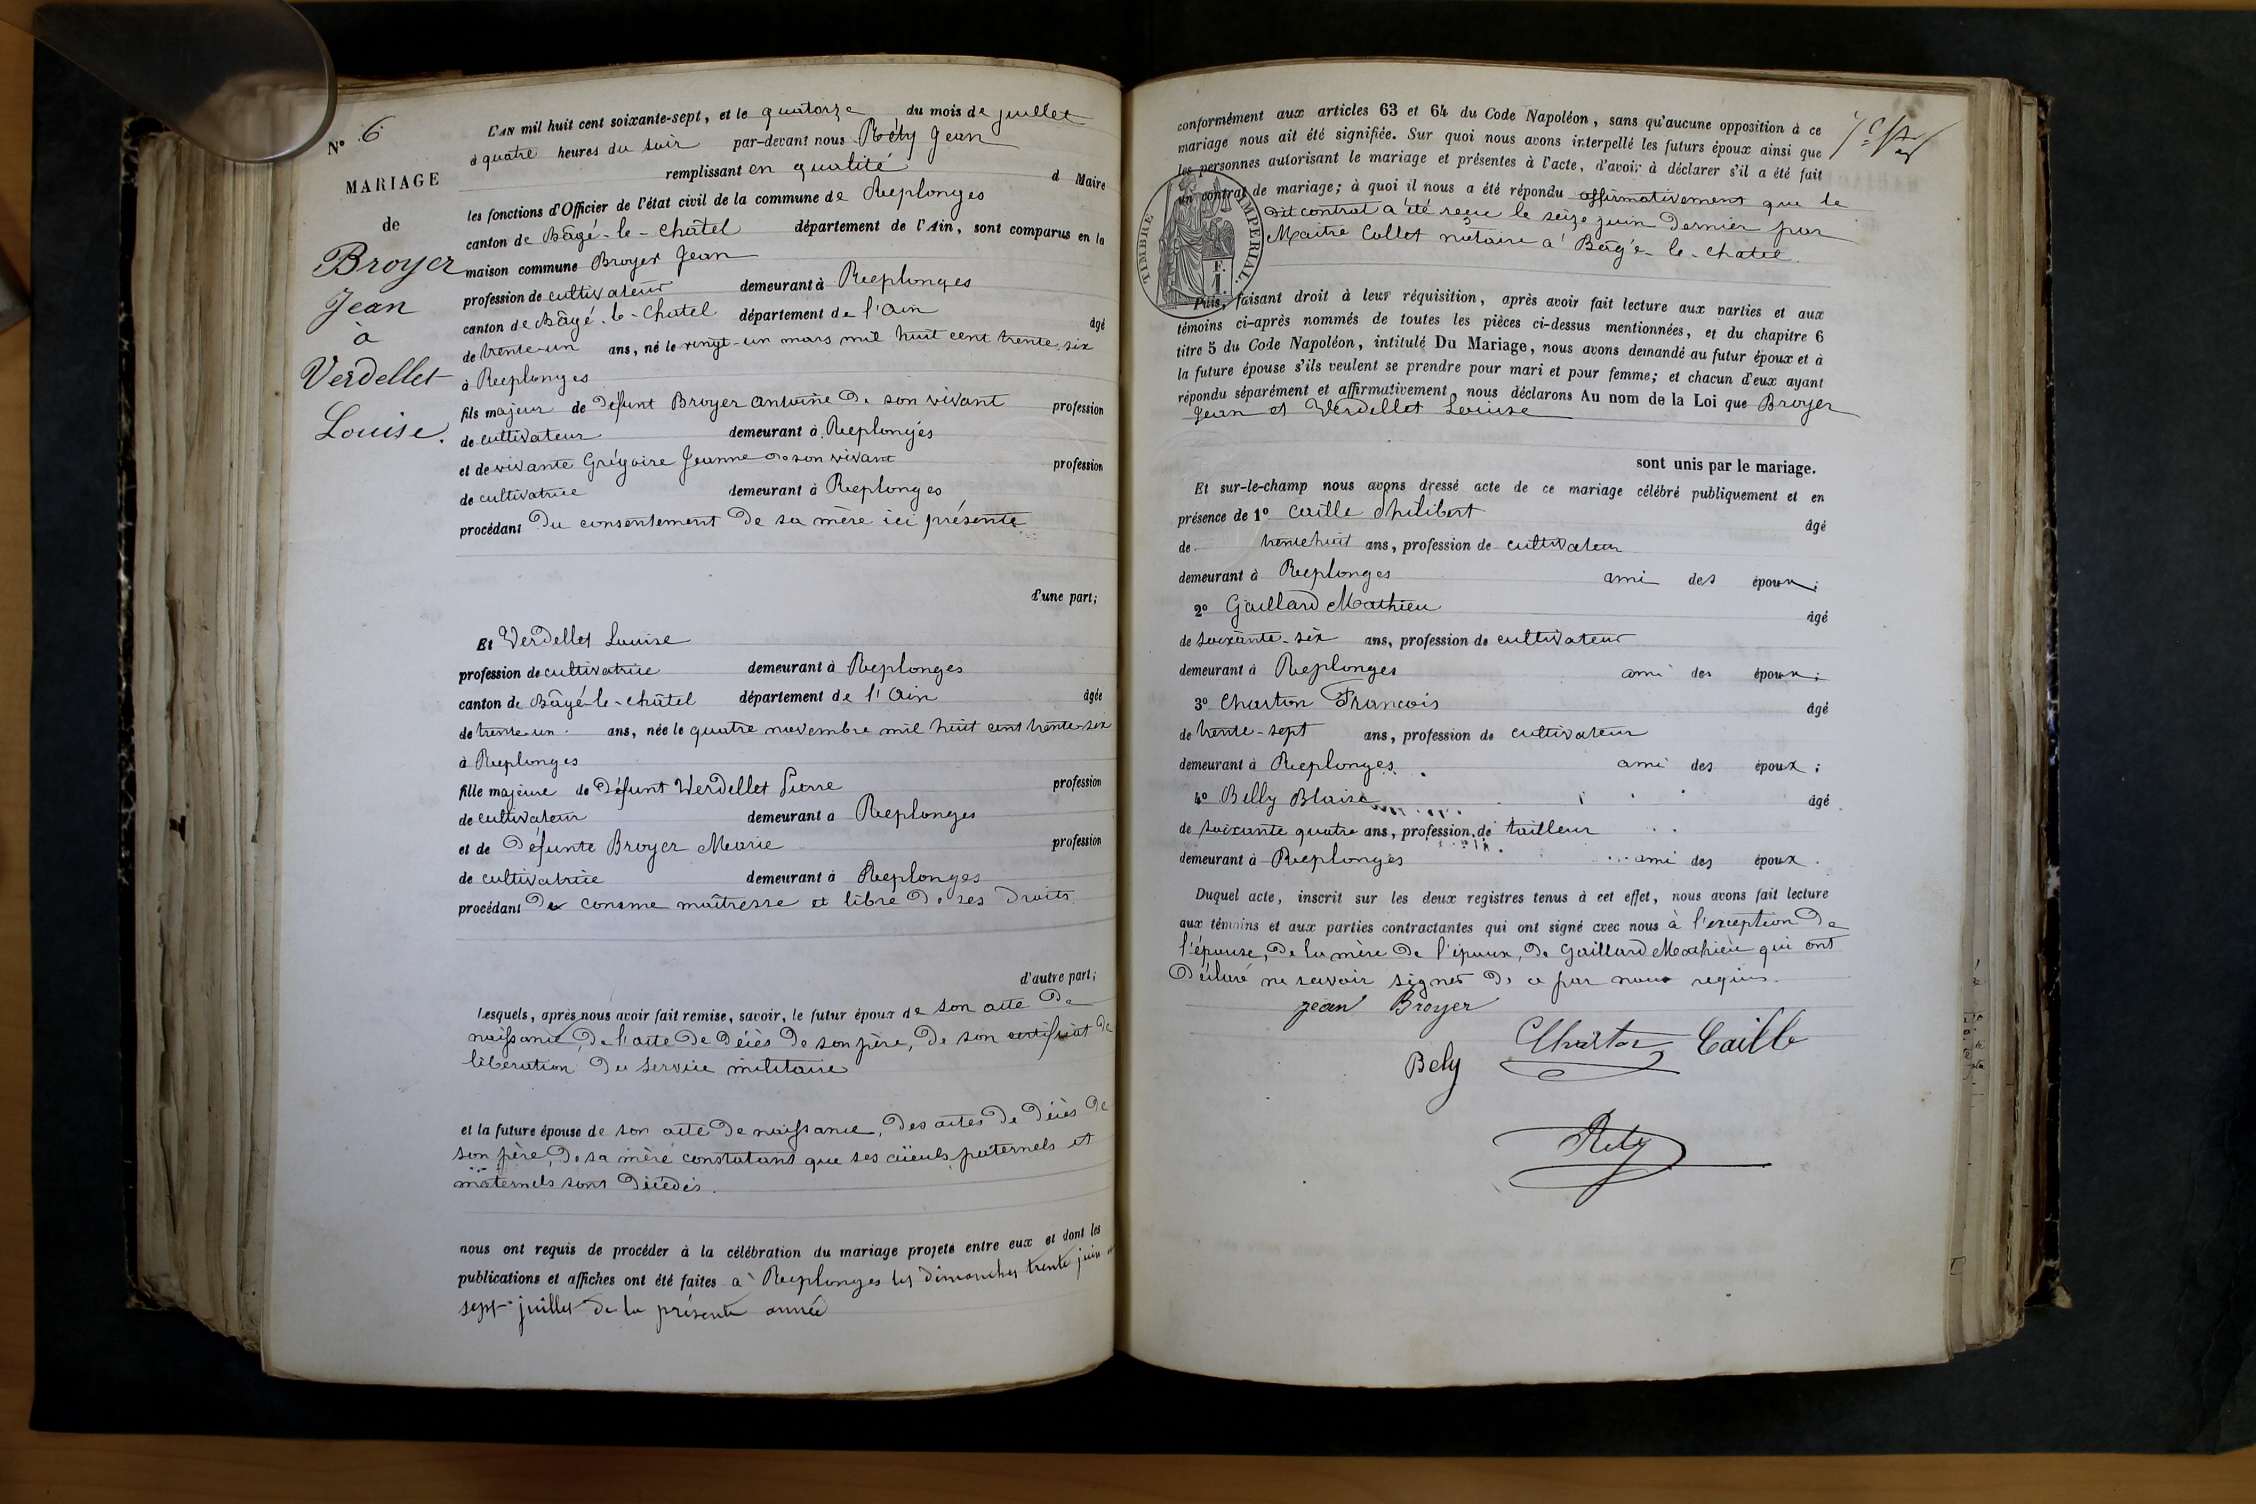 N° 6
MARIAGE
de
Broyer
Jean
à
Verdellet
Louise.
L'AN mil huit cent soixante-sept, et le quatorze du mois de juillet
à quatre heures du soir par-devant nous Réty Jean
remplissant en qualité d Maire
les fonctions d'Officier de l'état civil de la commune de Replonges
canton de Bâgé-le-châtel département de l'Ain, sont comparus en la
maison commune Broyer Jean
profession de cultivateur demeurant à Replonges
canton de Bâgé-le-Châtel département de l'Ain âgé
de trente-un ans, né le vingt-un mars mil huit cent trente-six
à Replonges
fils majeur de défunt Broyer Antoine de son vivant profession
de cultivateur demeurant à Replonges
et de vivante Grégoire Jeanne de son vivant profession
de cultivatrice demeurant à Replonges
procédant du consentement de sa mère ici présente
d'une part;
Et Verdellet Louise
profession de cultivatrice demeurant à Replonges
canton de Bâgé-le-châtel département de l'Ain âgée
de trente-un ans, née le quatre novembre mil huit cent trente-six
à Replonges
fille majeure de défunt Verdellet Pierre profession
de cultivateur demeurant à Replonges
et de défunte Broyer Marie profession
de cultivatrice demeurant à Replonges
procédant de comme maîtresse et libre de ses droits
d'autre part;
Lesquels, après nous avoir fait remise, savoir, le futur époux de son acte de
naissance, de l'acte de décès de son père, de son certificat de
libération du service militaire
et la future épouse de son acte de naissance, des actes de décès de
son père, de sa mère constatant que ses aïeuls paternels et
maternels sont décédés.
nous ont requis de procéder à la célébration du mariage projeté entre eux et dont les
publications et affiches ont été faites à Replonges les dimanches trente juin et
sept juillet de la présente année
conformément aux articles 63 et 64 du Code Napoléon, sans qu'aucune opposition à ce
mariage nous ait été signifiée. Sur quoi nous avons interpellé les futurs époux ainsi que
les personnes autorisant le mariage et présentes à l'acte, d'avoir à déclarer s'il a été fait
un contrat de mariage; à quoi il nous a été répondu affirmativement que le
dit contrat a été reçu le seize juin dernier par
Maître Collet notaire à Bâgé-le-châtel.
TIMBRE IMPÉRIAL.
F.
1.
Puis, faisant droit à leur réquisition, après avoir fait lecture aux parties et aux
témoins ci-après nommés de toutes les pièces ci-dessus mentionnées, et du chapitre 6
titre 5 du Code Napoléon, intitulé Du Mariage, nous avons demandé au futur époux et à
la future épouse s'ils veulent se prendre pour mari et pour femme; et chacun d'eux ayant
répondu séparément et affirmativement, nous déclarons Au nom de la Loi que Broyer
Jean et Verdellet Louise
sont unis par le mariage.
Et sur-le-champ nous avons dressé acte de ce mariage célébré publiquement et en
présence de 1° Caille Philibert âgé
de trente huit ans, profession de cultivateur
demeurant à Replonges ami des époux;
2° Gaillard Mathieu âgé
de soixante-six ans, profession de cultivateur
demeurant à Replonges ami des époux;
3° Charton François âgé
de trente-sept ans, profession de cultivateur
demeurant à Replonges ami des époux;
4° Belly Blaise âgé
de soixante quatre ans, profession de tailleur
demeurant à Replonges ami des époux.
Duquel acte, inscrit sur les deux registres tenus à cet effet, nous avons fait lecture
aux témoins et aux parties contractantes qui ont signé avec nous à l'exception de
l'épouse, de la mère de l'époux, de Gaillard Mathieu qui ont
déclaré ne savoir signer de ce par nous requis.
jean Broyer
Bely Charton Caille
Réty